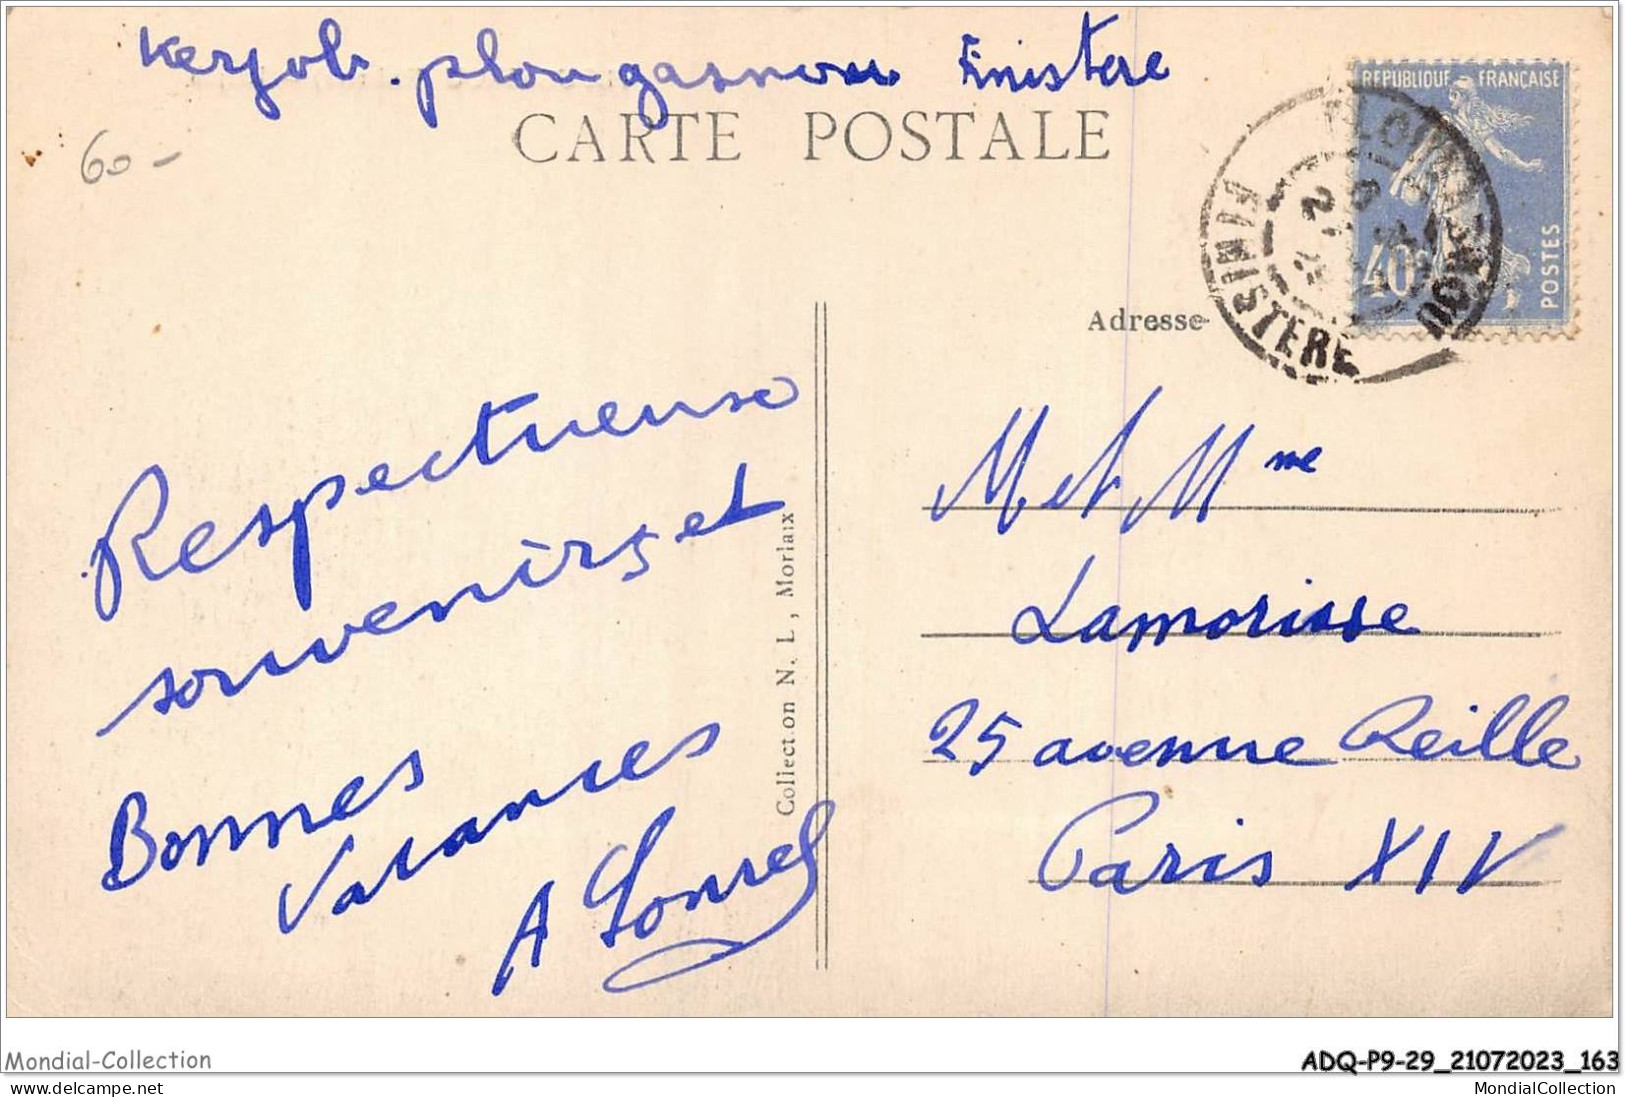 Kerjob. plougasnou Finistere
CARTE POSTALE
60 -
REPUBLIQUE FRANÇAISE
40c
POSTES
FINISTERE
Adresse
Respectueuse
souvenirs et
Bonnes
Vacances
A
Collection N. L., Morlaix
M et Mme
Lamorisse
25 avenue Reille
Paris XIV
Mondial-Collection
ADQ-P9-29_21072023_163
www.delcampe.net
MondialCollection